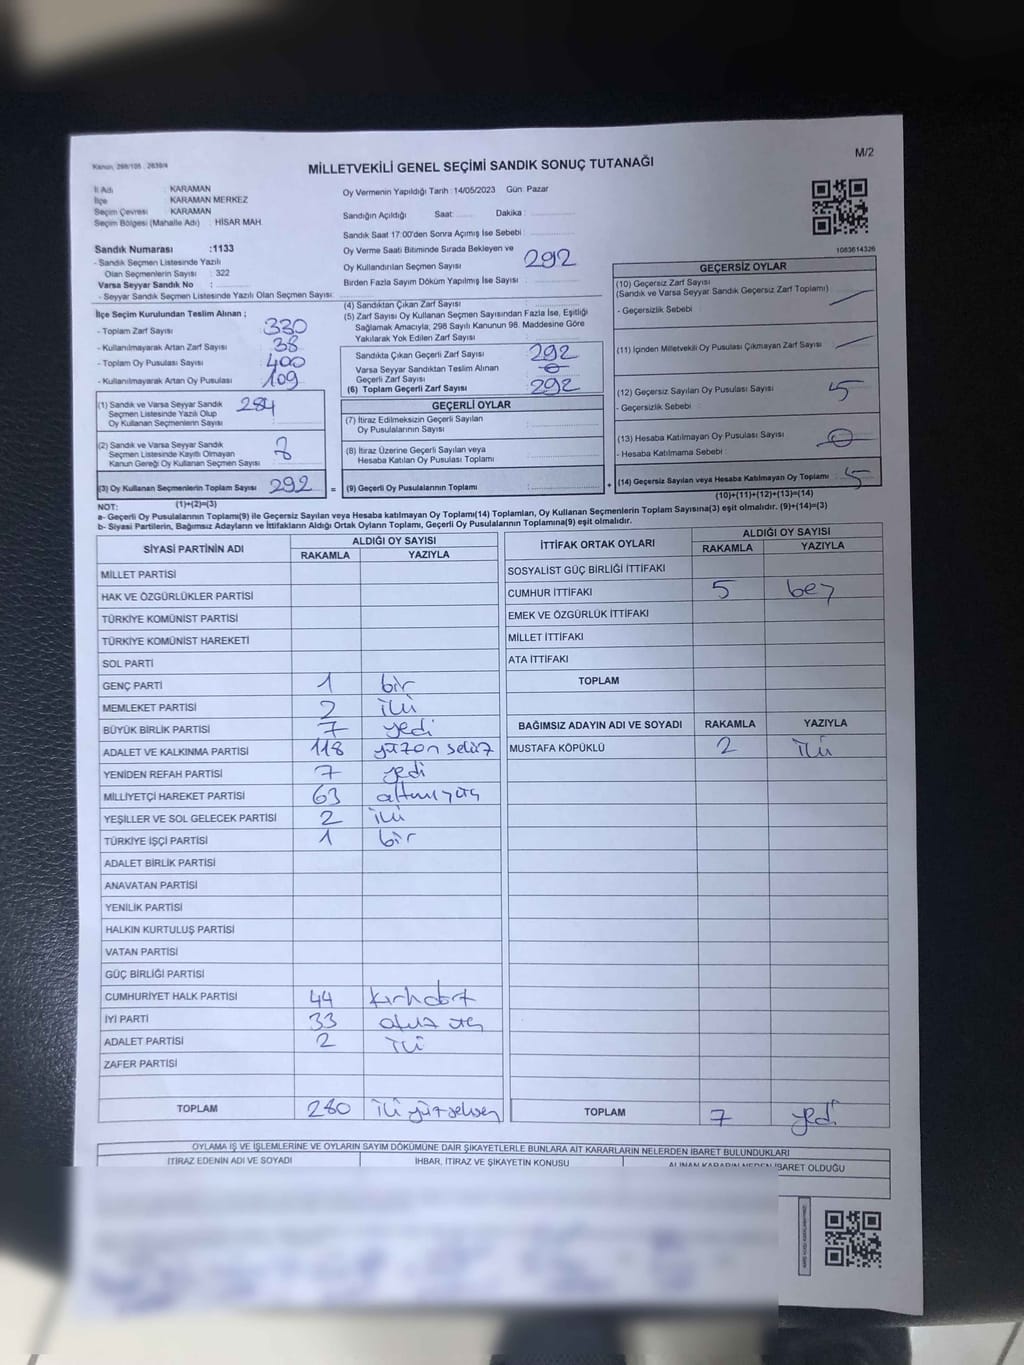 Kanun, 298/105 , 2839/4
M/2
MİLLETVEKİLİ GENEL SEÇİMİ SANDIK SONUÇ TUTANAĞI
İl Adı : KARAMAN
İlçe : KARAMAN MERKEZ
Seçim Çevresi : KARAMAN
Seçim Bölgesi (Mahalle Adı) : HİSAR MAH.
Oy Vermenin Yapıldığı Tarih : 14/05/2023 Gün: Pazar
Sandığın Açıldığı Saat: Dakika :
Sandık Saat 17:00'den Sonra Açımış İse Sebebi :
Sandık Numarası :1133
- Sandık Seçmen Listesinde Yazılı
Olan Seçmenlerin Sayısı : 322
Varsa Seyyar Sandık No :
- Seyyar Sandık Seçmen Listesinde Yazılı Olan Seçmen Sayısı:
Oy Verme Saati Bitiminde Sırada Bekleyen ve
Oy Kullandırılan Seçmen Sayısı 292
Birden Fazla Sayım Döküm Yapılmış İse Sayısı :
1083614326
İlçe Seçim Kurulundan Teslim Alınan ;
- Toplam Zarf Sayısı 330
- Kullanılmayarak Artan Zarf Sayısı 38
- Toplam Oy Pusulası Sayısı 400
- Kullanılmayarak Artan Oy Pusulası 109
(1) Sandık ve Varsa Seyyar Sandık
Seçmen Listesinde Yazılı Olup
Oy Kullanan Seçmenlerin Sayısı 284
(2) Sandık ve Varsa Seyyar Sandık
Seçmen Listesinde Kayıtlı Olmayan
Kanun Gereği Oy Kullanan Seçmen Sayısı 8
(3) Oy Kullanan Seçmenlerin Toplam Sayısı 292 =
(1)+(2)=(3)
(4) Sandıktan Çıkan Zarf Sayısı :
(5) Zarf Sayısı Oy Kullanan Seçmen Sayısından Fazla İse, Eşitliği
Sağlamak Amacıyla, 298 Sayılı Kanunun 98. Maddesine Göre
Yakılarak Yok Edilen Zarf Sayısı :
Sandıkta Çıkan Geçerli Zarf Sayısı 292
Varsa Seyyar Sandıktan Teslim Alınan
Geçerli Zarf Sayısı 0
(6) Toplam Geçerli Zarf Sayısı 292
GEÇERLİ OYLAR
(7) İtiraz Edilmeksizin Geçerli Sayılan
Oy Pusulalarının Sayısı :
(8) İtiraz Üzerine Geçerli Sayılan veya
Hesaba Katılan Oy Pusulası Toplamı :
(9) Geçerli Oy Pusulalarının Toplamı : +
GEÇERSİZ OYLAR
(10) Geçersiz Zarf Sayısı
(Sandık ve Varsa Seyyar Sandık Geçersiz Zarf Toplamı) :
- Geçersizlik Sebebi :
(11) İçinden Milletvekili Oy Pusulası Çıkmayan Zarf Sayısı :
(12) Geçersiz Sayılan Oy Pusulası Sayısı : 5
- Geçersizlik Sebebi :
(13) Hesaba Katılmayan Oy Pusulası Sayısı : 0
- Hesaba Katılmama Sebebi :
(14) Geçersiz Sayılan veya Hesaba Katılmayan Oy Toplamı : 5
(10)+(11)+(12)+(13)=(14)
NOT:
a- Geçerli Oy Pusulalarının Toplamı(9) ile Geçersiz Sayılan veya Hesaba katılmayan Oy Toplamı(14) Toplamları, Oy Kullanan Seçmenlerin Toplam Sayısına(3) eşit olmalıdır. (9)+(14)=(3)
b- Siyasi Partilerin, Bağımsız Adayların ve İttifakların Aldığı Ortak Oyların Toplamı, Geçerli Oy Pusulalarının Toplamına(9) eşit olmalıdır.
SİYASİ PARTİNİN ADI ALDIĞI OY SAYISI
RAKAMLA YAZIYLA
MİLLET PARTİSİ
HAK VE ÖZGÜRLÜKLER PARTİSİ
TÜRKİYE KOMÜNİST PARTİSİ
TÜRKİYE KOMÜNİST HAREKETİ
SOL PARTİ
GENÇ PARTİ 1 bir
MEMLEKET PARTİSİ 2 iki
BÜYÜK BİRLİK PARTİSİ 7 yedi
ADALET VE KALKINMA PARTİSİ 118 yüzon sekiz
YENİDEN REFAH PARTİSİ 7 yedi
MİLLİYETÇİ HAREKET PARTİSİ 63 altmışüç
YEŞİLLER VE SOL GELECEK PARTİSİ 2 iki
TÜRKİYE İŞÇİ PARTİSİ 1 bir
ADALET BİRLİK PARTİSİ
ANAVATAN PARTİSİ
YENİLİK PARTİSİ
HALKIN KURTULUŞ PARTİSİ
VATAN PARTİSİ
GÜÇ BİRLİĞİ PARTİSİ
CUMHURİYET HALK PARTİSİ 44 kırkdört
İYİ PARTİ 33 otuz üç
ADALET PARTİSİ 2 iki
ZAFER PARTİSİ
TOPLAM 280 ikiyüzseksen
İTTİFAK ORTAK OYLARI ALDIĞI OY SAYISI
RAKAMLA YAZIYLA
SOSYALİST GÜÇ BİRLİĞİ İTTİFAKI
CUMHUR İTTİFAKI 5 beş
EMEK VE ÖZGÜRLÜK İTTİFAKI
MİLLET İTTİFAKI
ATA İTTİFAKI
TOPLAM
BAĞIMSIZ ADAYIN ADI VE SOYADI RAKAMLA YAZIYLA
MUSTAFA KÖPÜKLÜ 2 iki
TOPLAM 7 yedi
OYLAMA İŞ VE İŞLEMLERİNE VE OYLARIN SAYIM DÖKÜMÜNE DAİR ŞİKAYETLERLE BUNLARA AİT KARARLARIN NELERDEN İBARET BULUNDUKLARI
İTİRAZ EDENİN ADI VE SOYADI İHBAR, İTİRAZ VE ŞİKAYETİN KONUSU ALINAN KARARIN NEDEN İBARET OLDUĞU